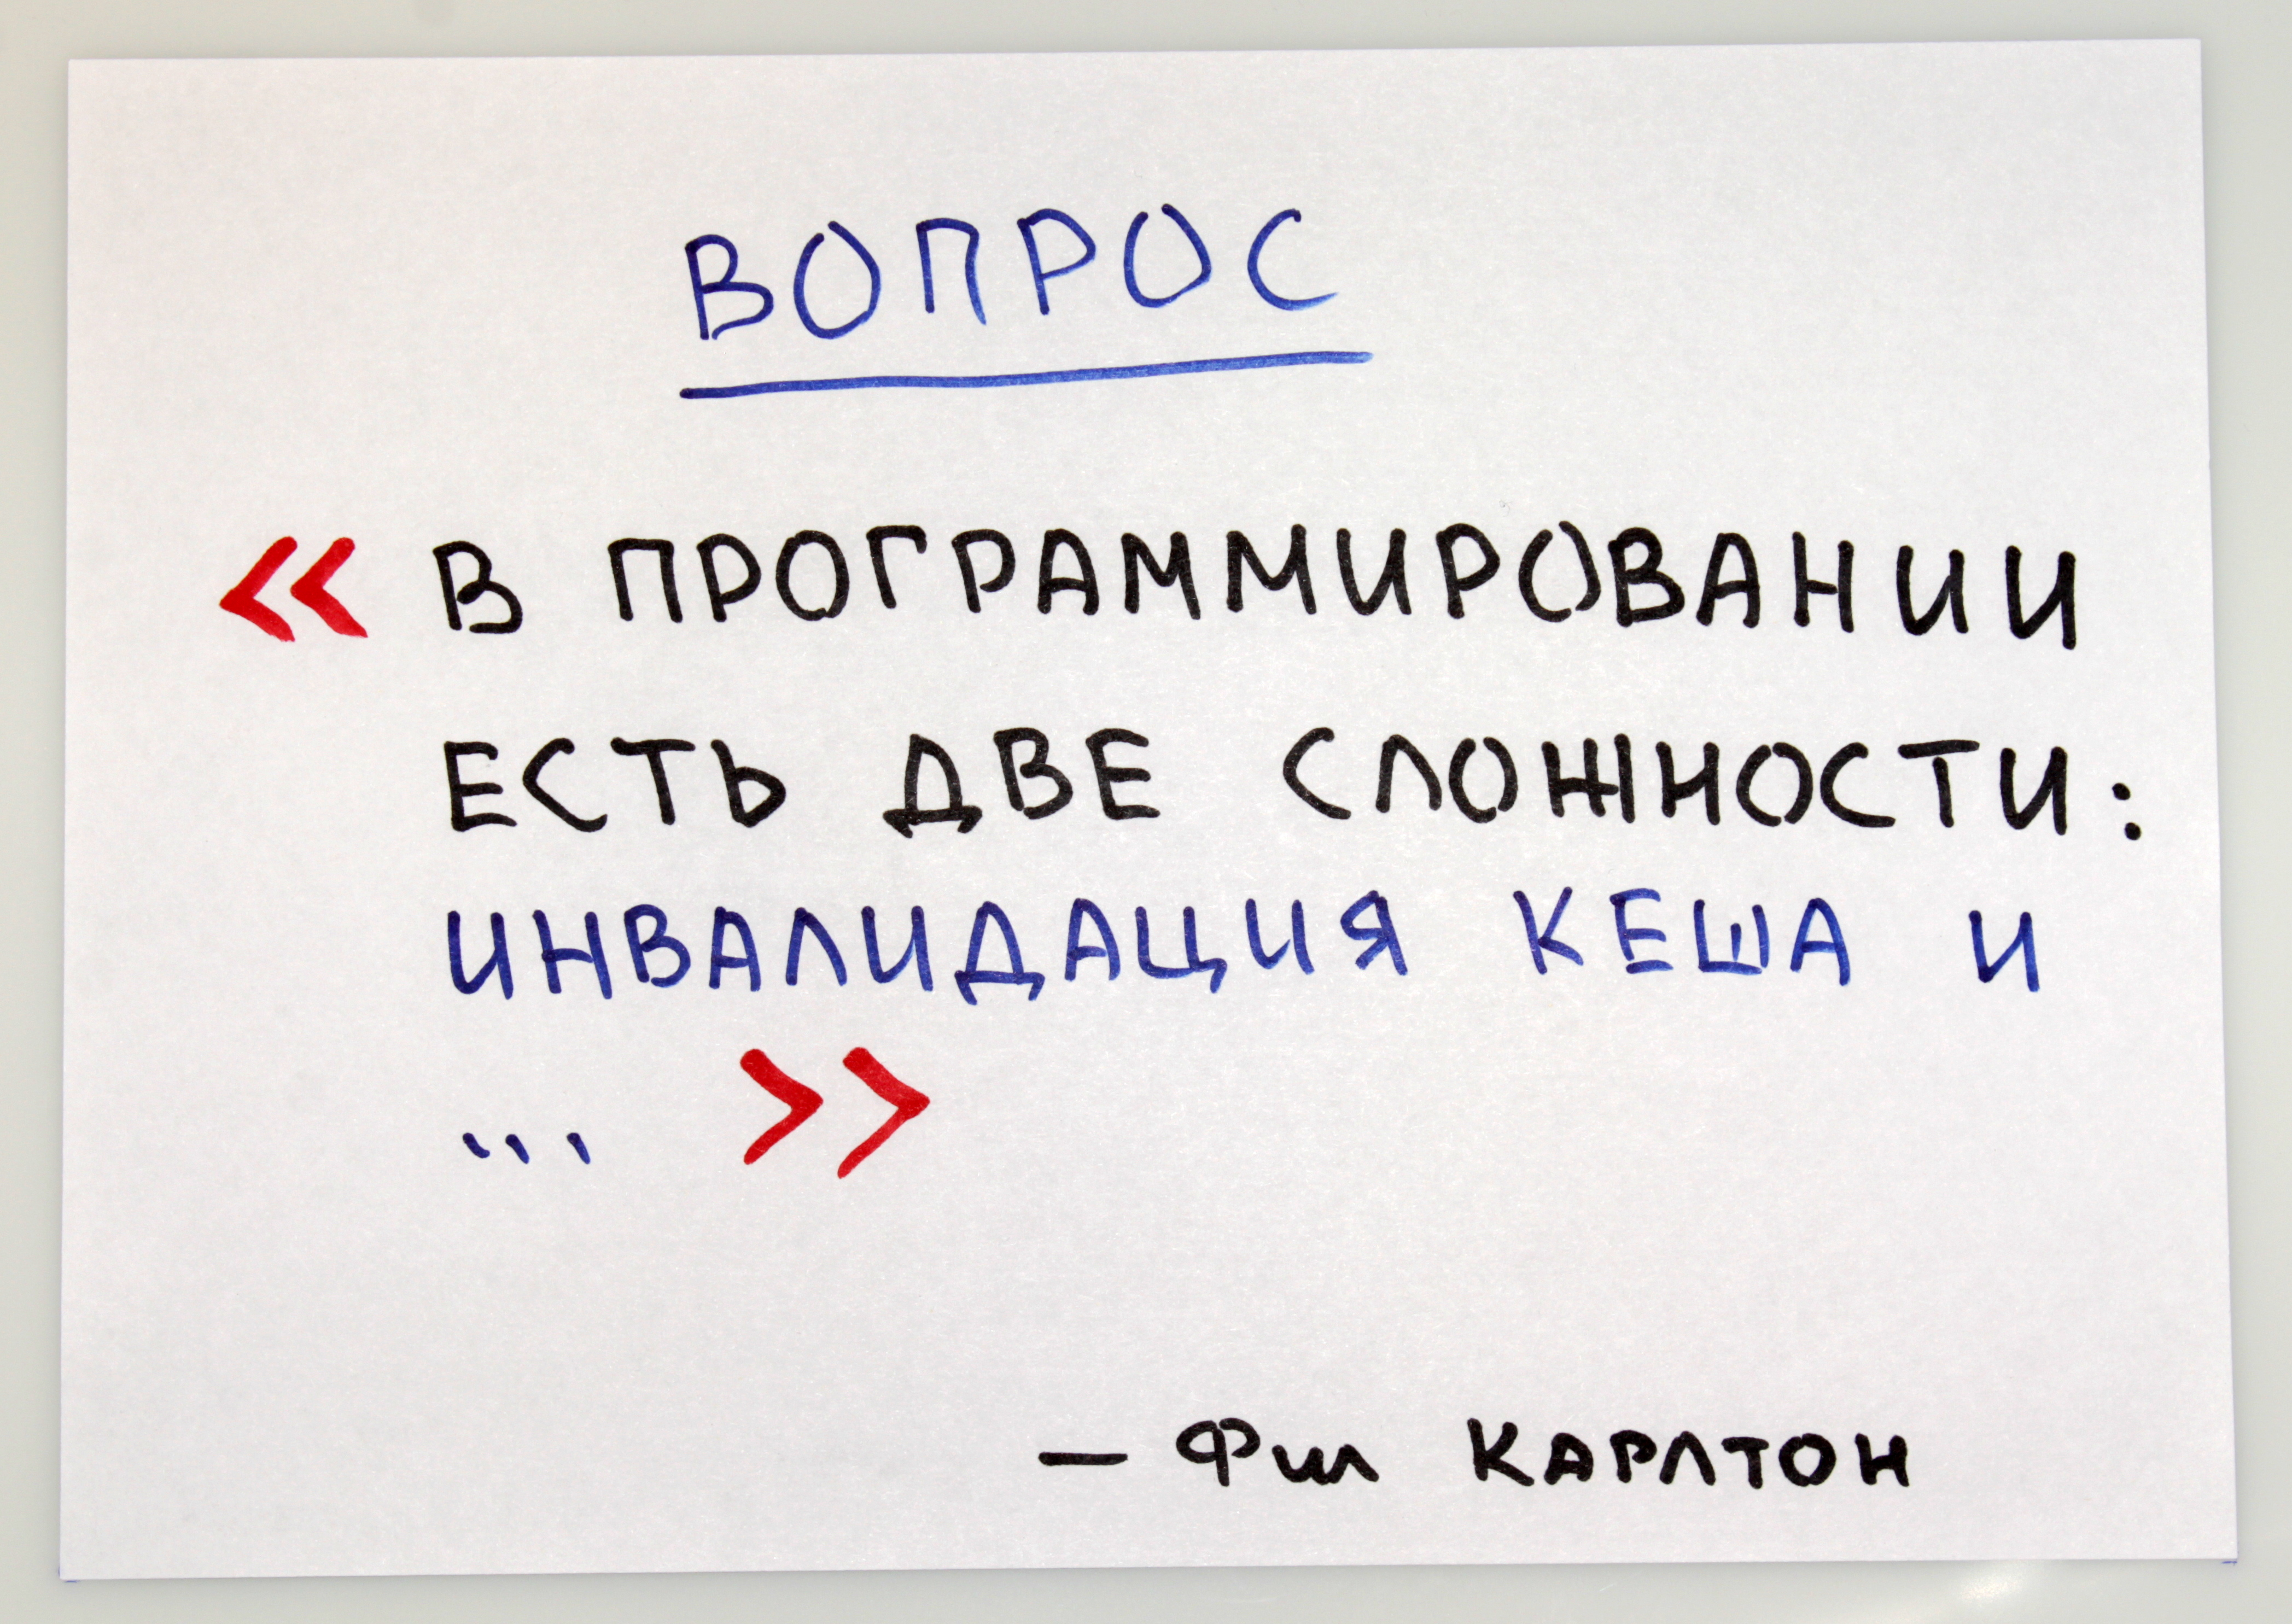 ВОПРОС
« В ПРОГРАММИРОВАНИИ
ЕСТЬ ДВЕ СЛОЖНОСТИ:
ИНВАЛИДАЦИЯ КЕША И
... »
— Фил КАРЛТОН